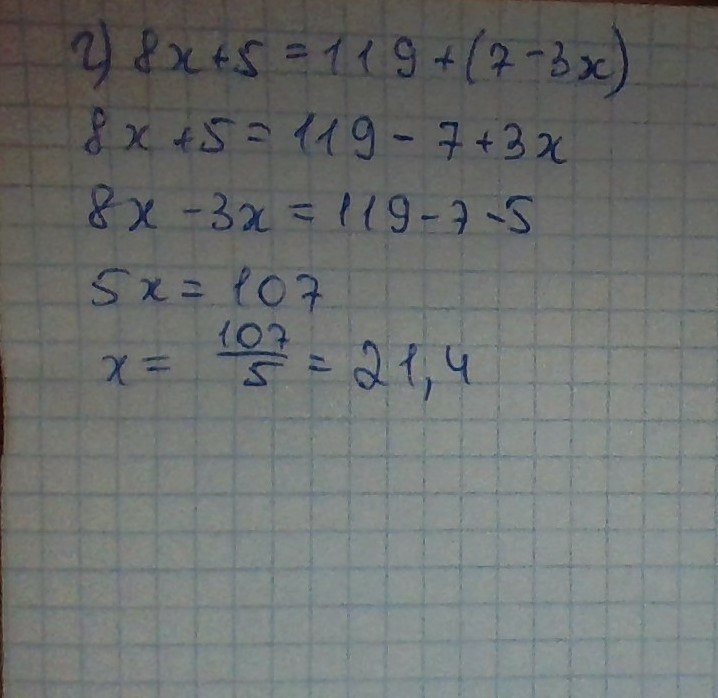 г) 8x+5=119+(7-3x)
8x+5=119-7+3x
8x-3x=119-7-5
5x=107
x= 107/5 = 21,4